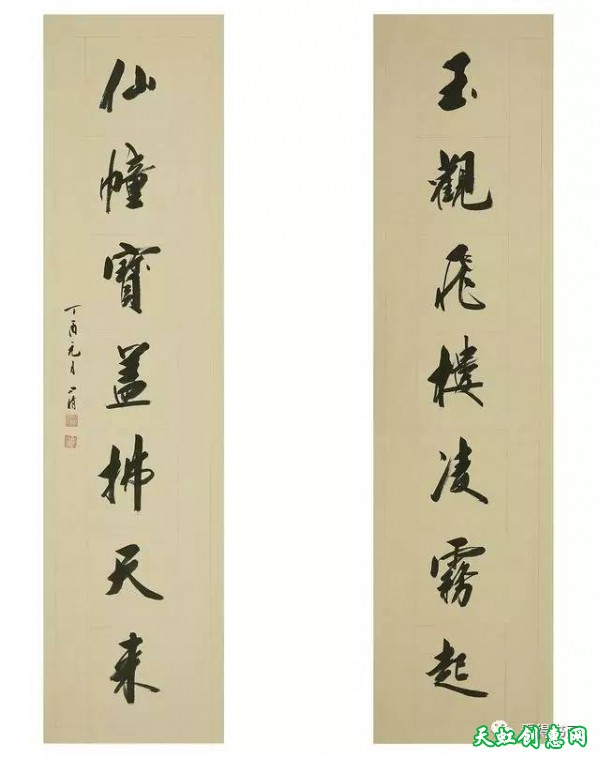 玉觀飛樓凌霧起
仙幢寶蓋拂天来
丁酉元月
天虹创惠网